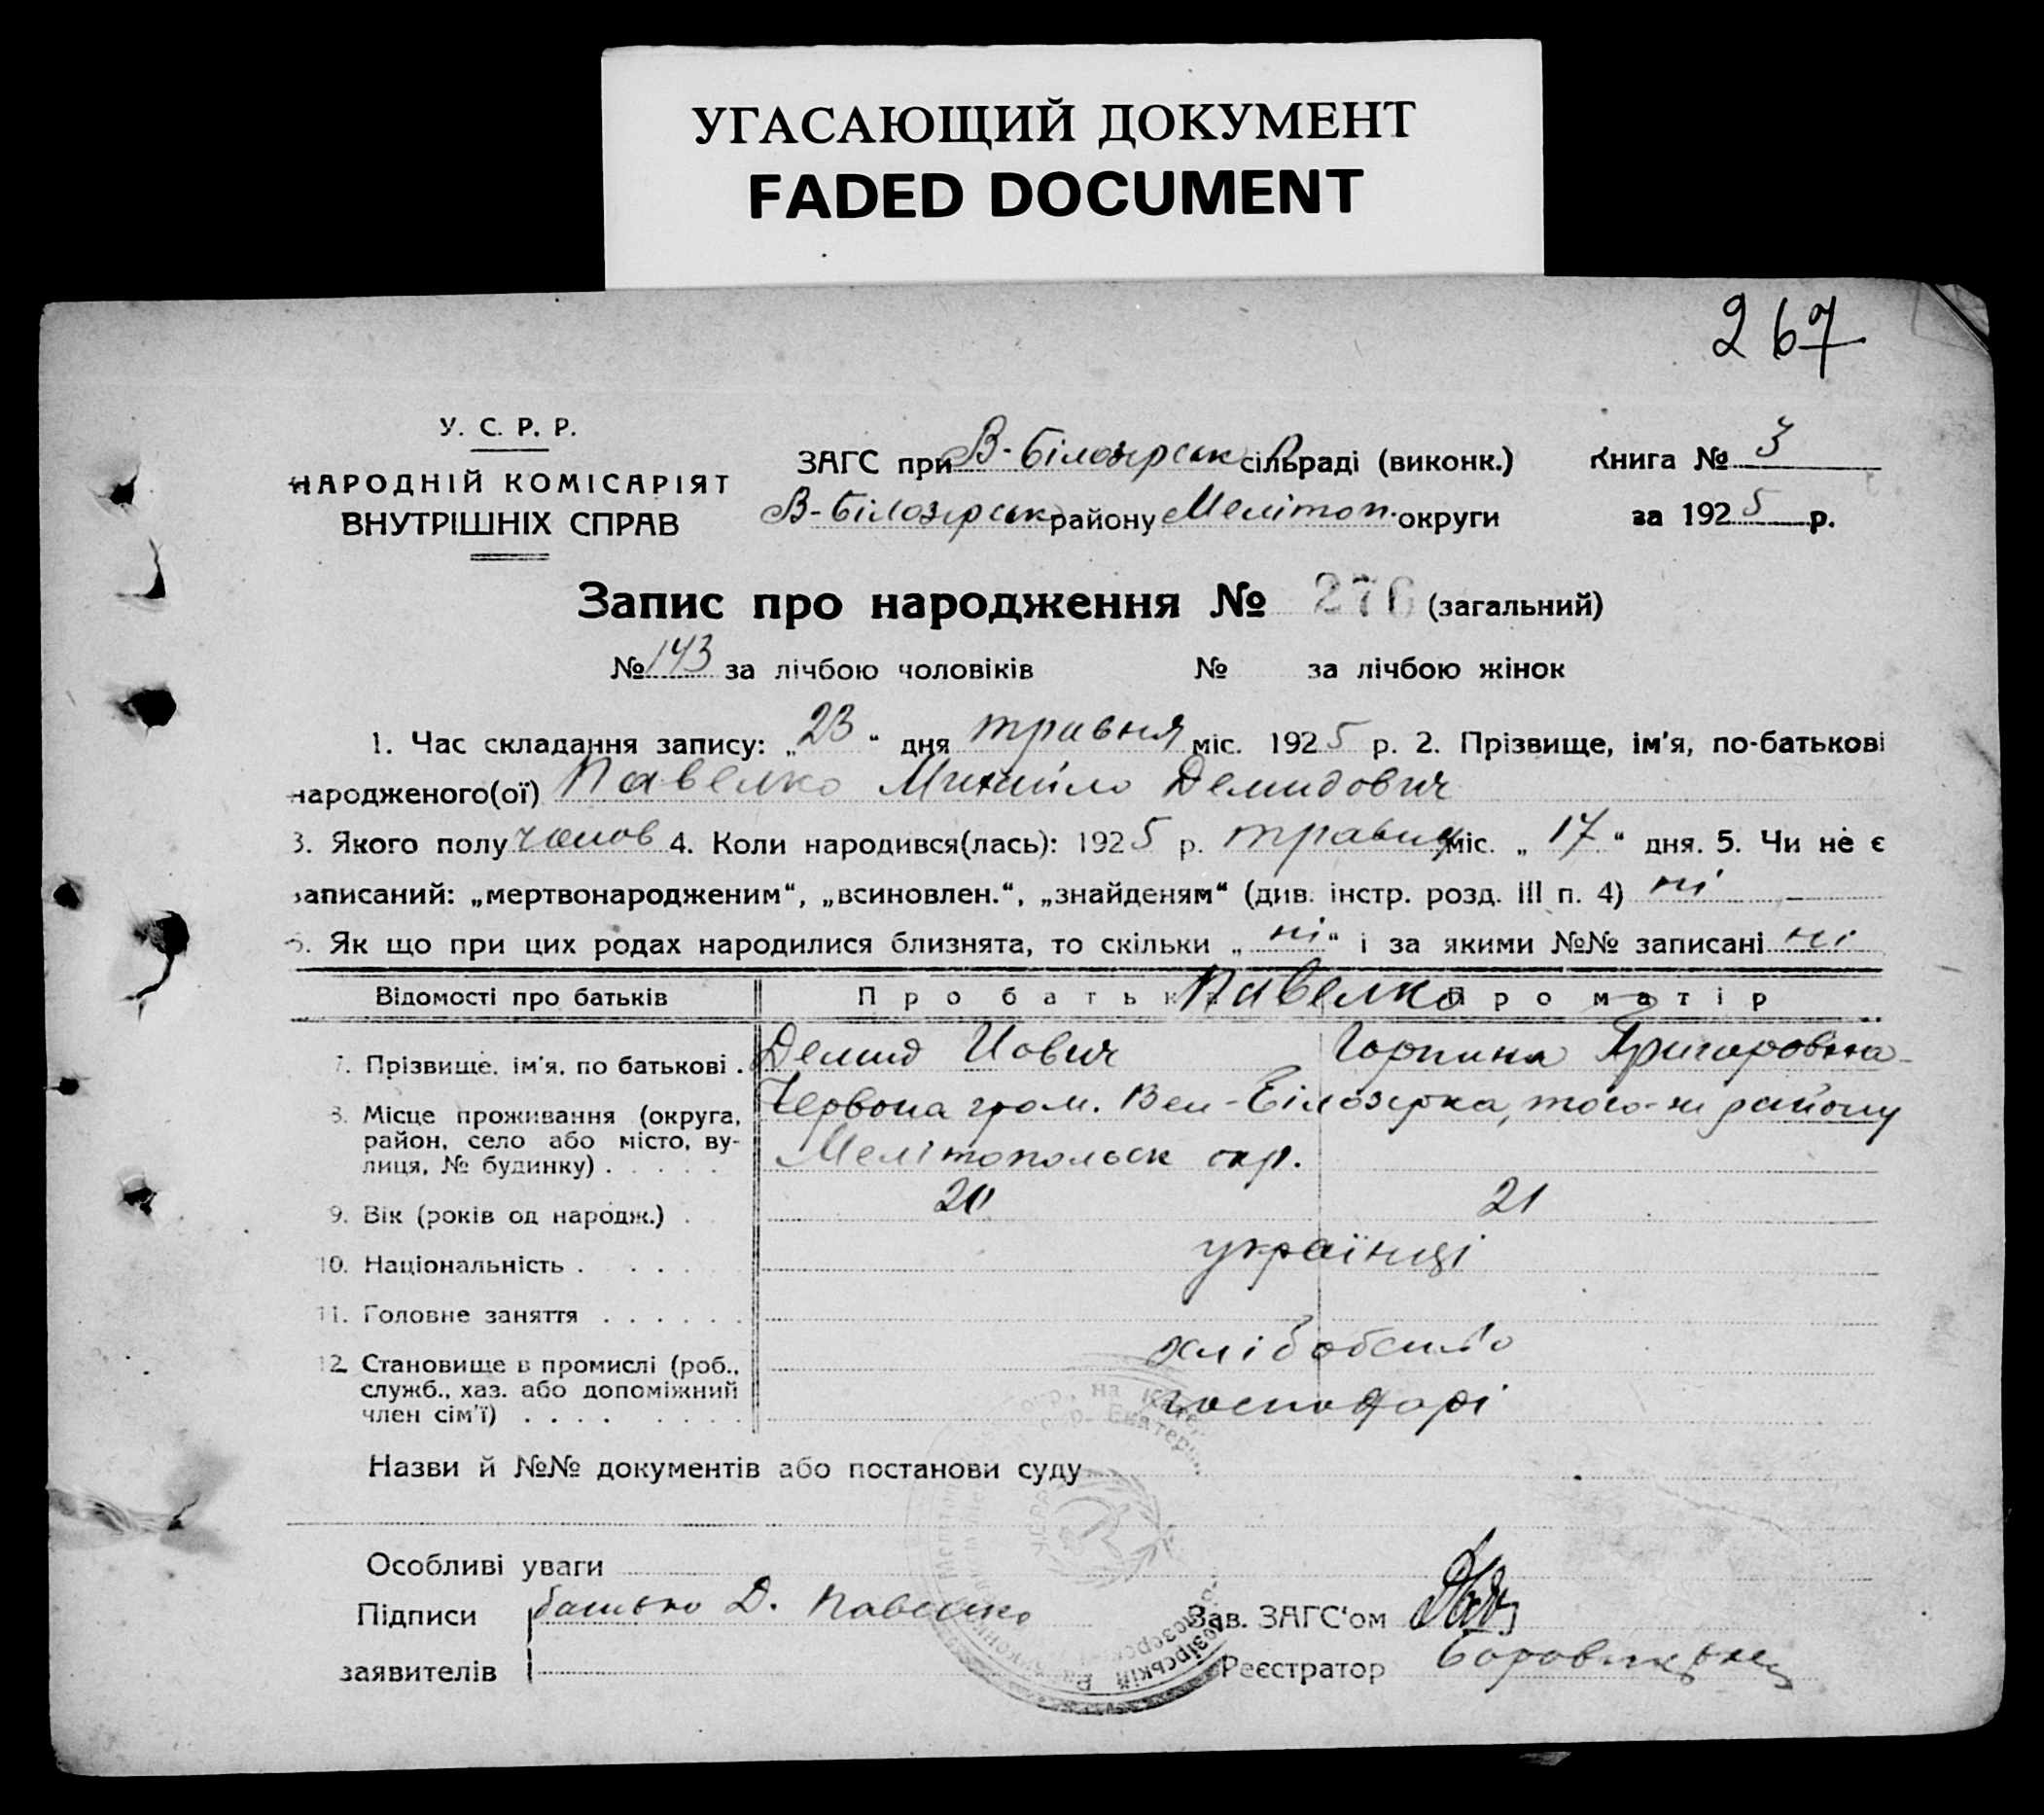 УГАСАЮЩИЙ ДОКУМЕНТ
FADED DOCUMENT
267
У. С. Р. Р.
НАРОДНІЙ КОМІСАРІЯТ
ВНУТРІШНІХ СПРАВ
ЗАГС при В-Білозірськ сільраді (виконк.)
В-Білозірськ району Мелітоп. округи
Книга № 3
за 1925 р.
Запис про народження № 276 (загальний)
№ 143 за лічбою чоловіків № за лічбою жінок
1. Час складання запису: „23“ дня травня міс. 1925 р. 2. Прізвище, ім'я, по-батькові
народженого(ої) Павелко Михайло Демидович
3. Якого полу чолов 4. Коли народився(лась): 1925 р. травня міс. „17“ дня. 5. Чи не є
записаний: „мертвонародженим“, „всиновлен.“, „знайденям“ (див. інстр. розд. III п. 4) ні
6. Як що при цих родах народилися близнята, то скільки „ні“ і за якими №№ записані ні
Відомості про батьків Про батьк Павелко Про матір
7. Прізвище, ім'я, по батькові . Демид Иович Горпина Григоровна
8. Місце проживання (округа, район, село або місто, вулиця, № будинку) . . . . . Червона гром. Вел-Білозірка, того-ж району
Мелітопольск окр.
9. Вік (років од народж.) . 20 21
10. Національність . . . . українці
11. Головне заняття . . . . . .
хлібобство
12. Становище в промислі (роб., служб., хаз. або допоміжний член сім'ї) . . . . . . . . господарі
Назви й №№ документів або постанови суду
Особливі уваги
Підписи батько Д. Павелко
заявителів
Зав. ЗАГС'ом
Реєстратор